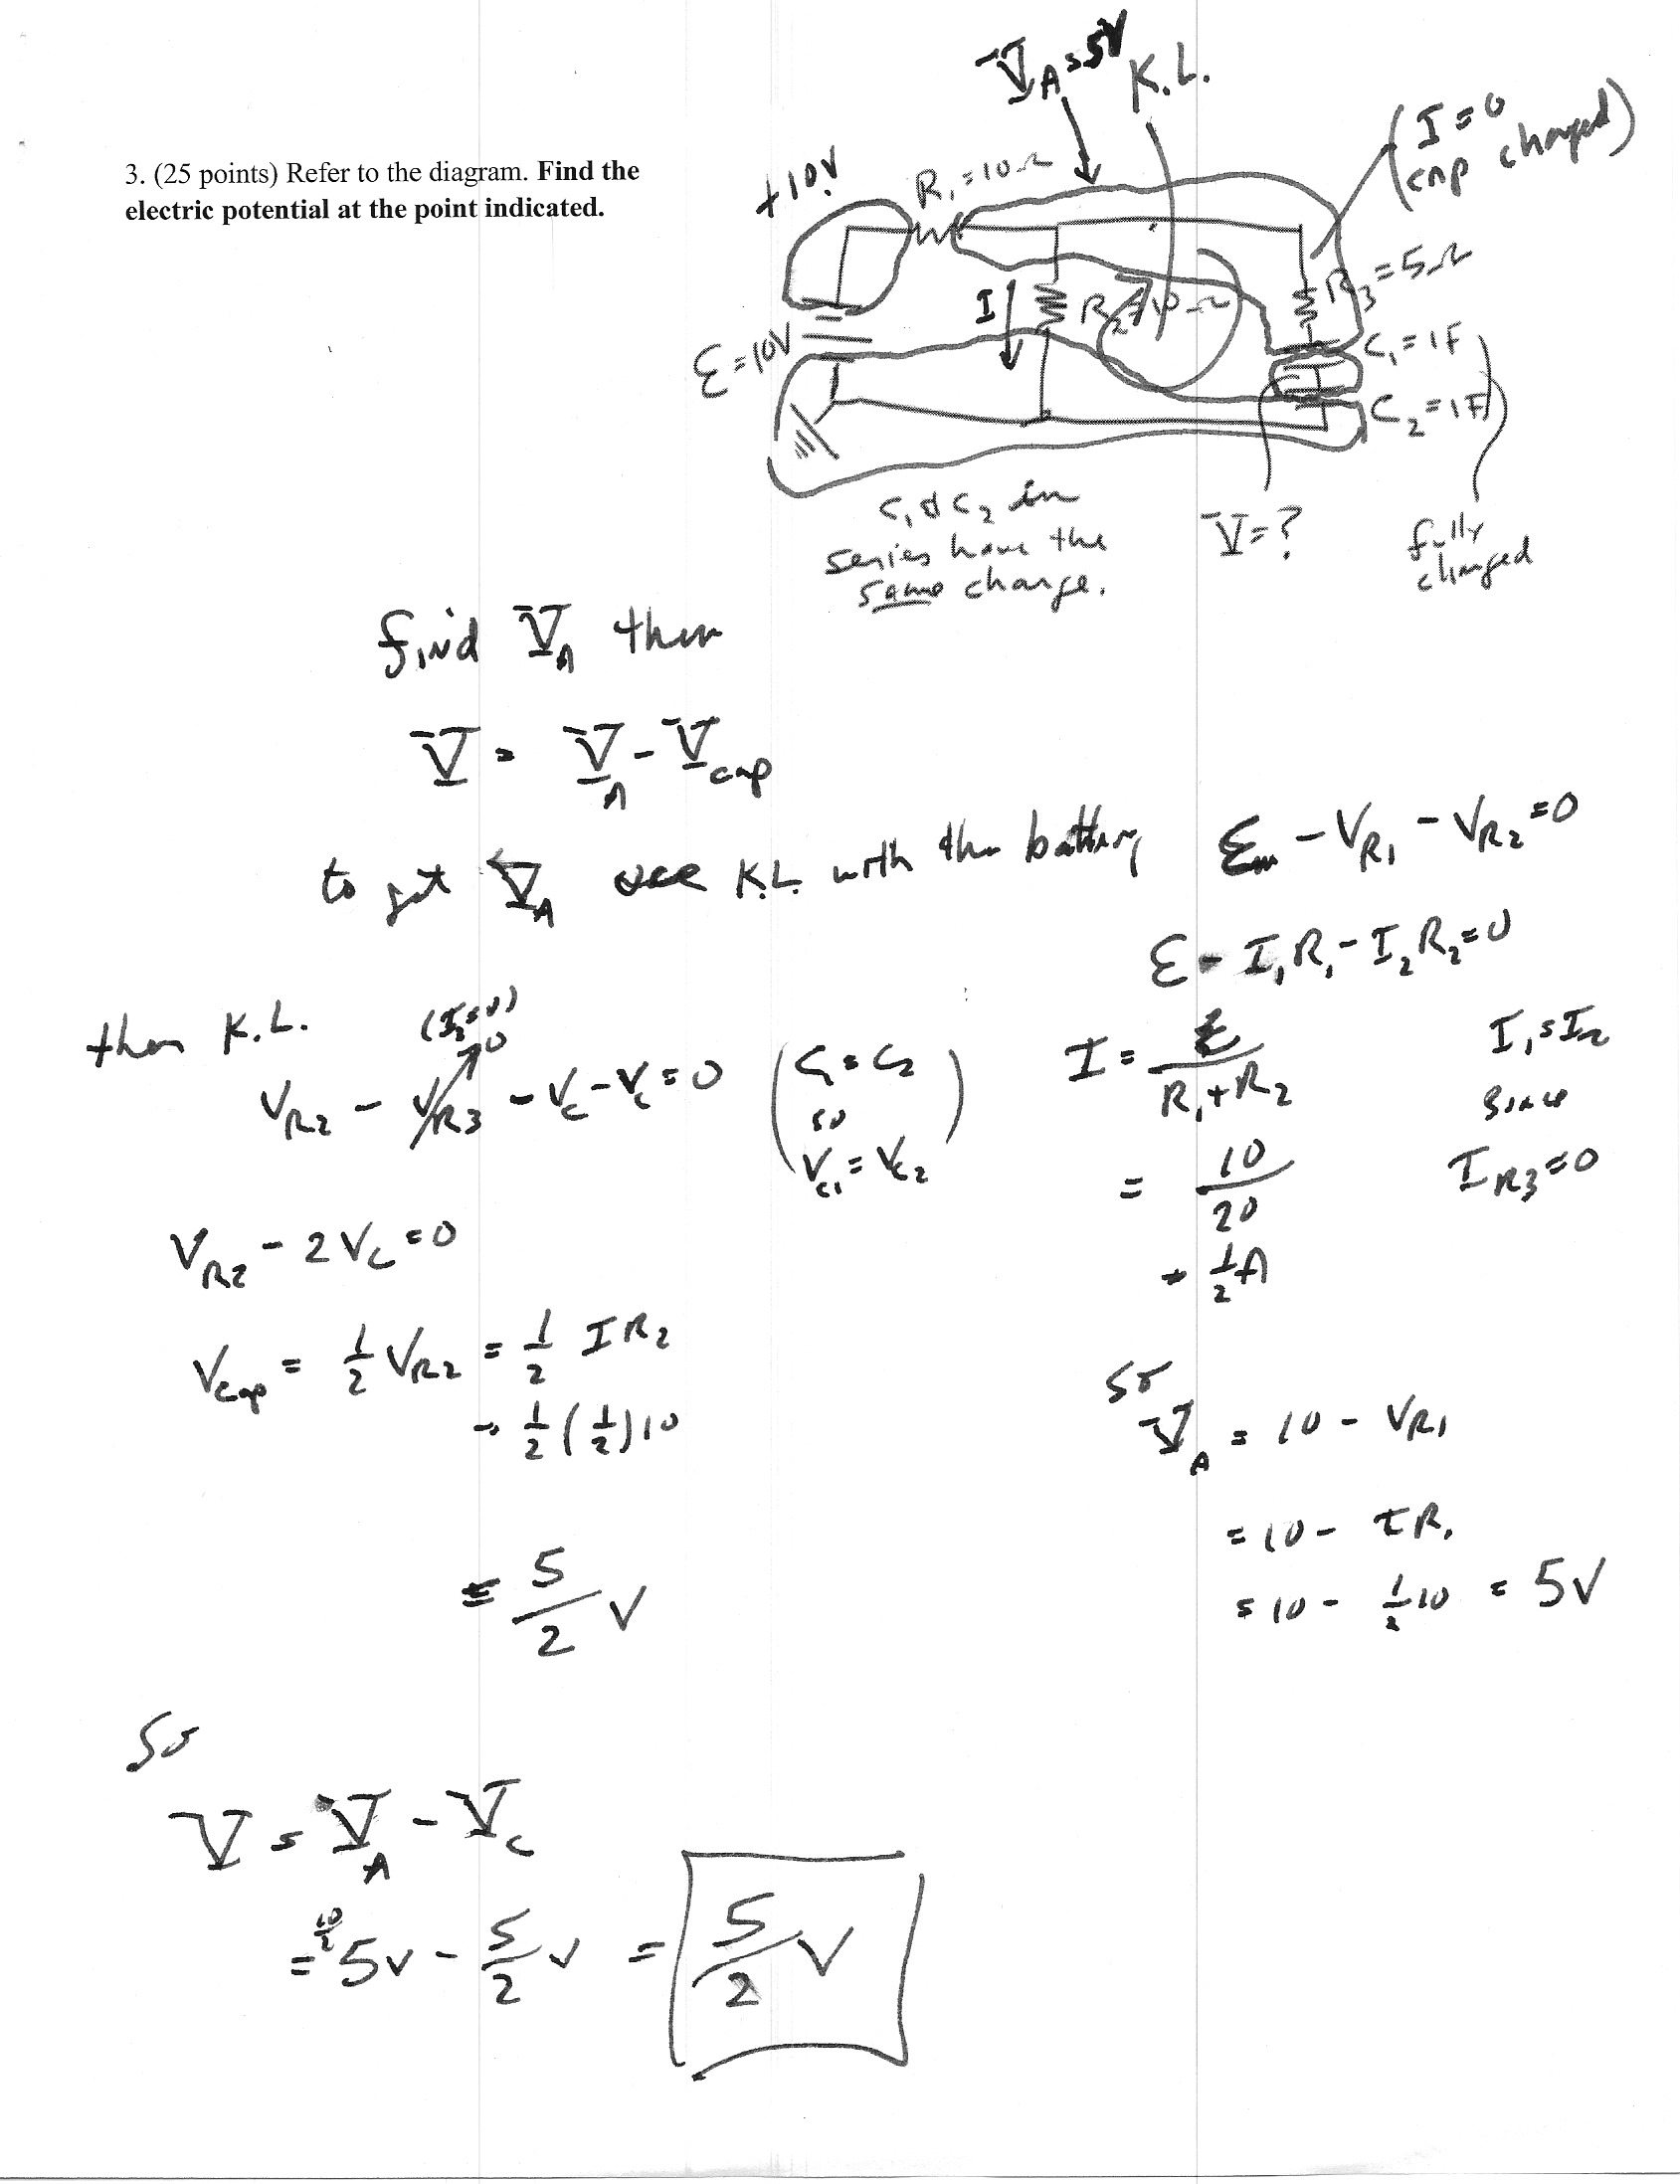 3. (25 points) Refer to the diagram. Find the
electric potential at the point indicated.
V_A = 5V
K.L.
(I = 0
cap charged)
+10V
R₁ = 10Ω
R₃ = 5Ω
I
R₂ = 10Ω
ℰ = 10V
C₁ = 1F
C₂ = 1F
C₁ & C₂ in
series have the
same charge.
V = ?
fully
charged
find V_A then
V = V_A - V_cap
to get V_A use K.L. with the battery
ℰ - V_R1 - V_R2 = 0
ℰ - I₁R₁ - I₂R₂ = 0
I = ℰ / (R₁ + R₂)
I₁ = I₂
since
I_R3 = 0
= 10/20
= 1/2 A
then K.L.
(I₃ = 0)
0
V_R2 - V_R3 - V_C - V_C = 0
(C₁ = C₂
so
V_C1 = V_C2)
V_R2 - 2V_C = 0
V_cap = 1/2 V_R2 = 1/2 I R₂
= 1/2 (1/2) 10
= 5/2 V
so
V_A = 10 - V_R1
= 10 - IR₁
= 10 - 1/2 10 = 5V
So
V = V_A - V_C
10/2
= 5V - 5/2 V = 5/2 V